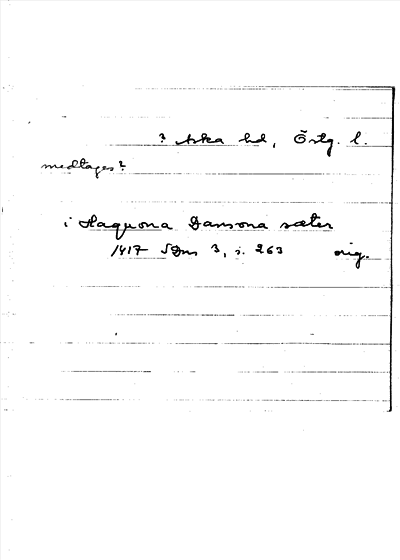 ? Aska hd, Östg. l.
medtages?
i Haquona Dansona sæter
1417 SDns 3, s. 263 orig.